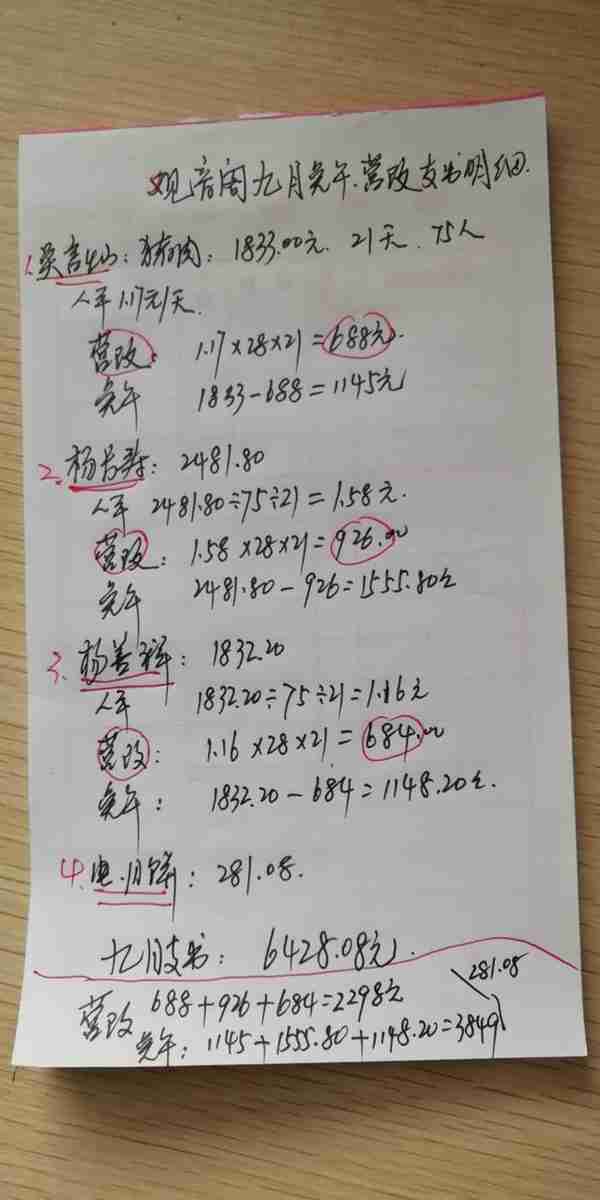 观音阁九月免午.营改支出明细.
1.吴言山: 猪肉: 1833.00元. 21天. 75人
人平1.17元/天.
营改: 1.17×28×21=688元.
免午 1833-688=1145元
2.杨长寿: 2481.80
人平 2481.80÷75÷21=1.58元.
营改: 1.58×28×21=926.00
免午 2481.80-926=1555.80元
3.杨善祥: 1832.20
人平 1832.20÷75÷21=1.16元
营改: 1.16×28×21=684.00
免午: 1832.20-684=1148.20元.
4.电.月饼: 281.08.
九月支出: 6428.08元.
281.08
营改 688+926+684=2298元
免午: 1145+1555.80+1148.20=3849